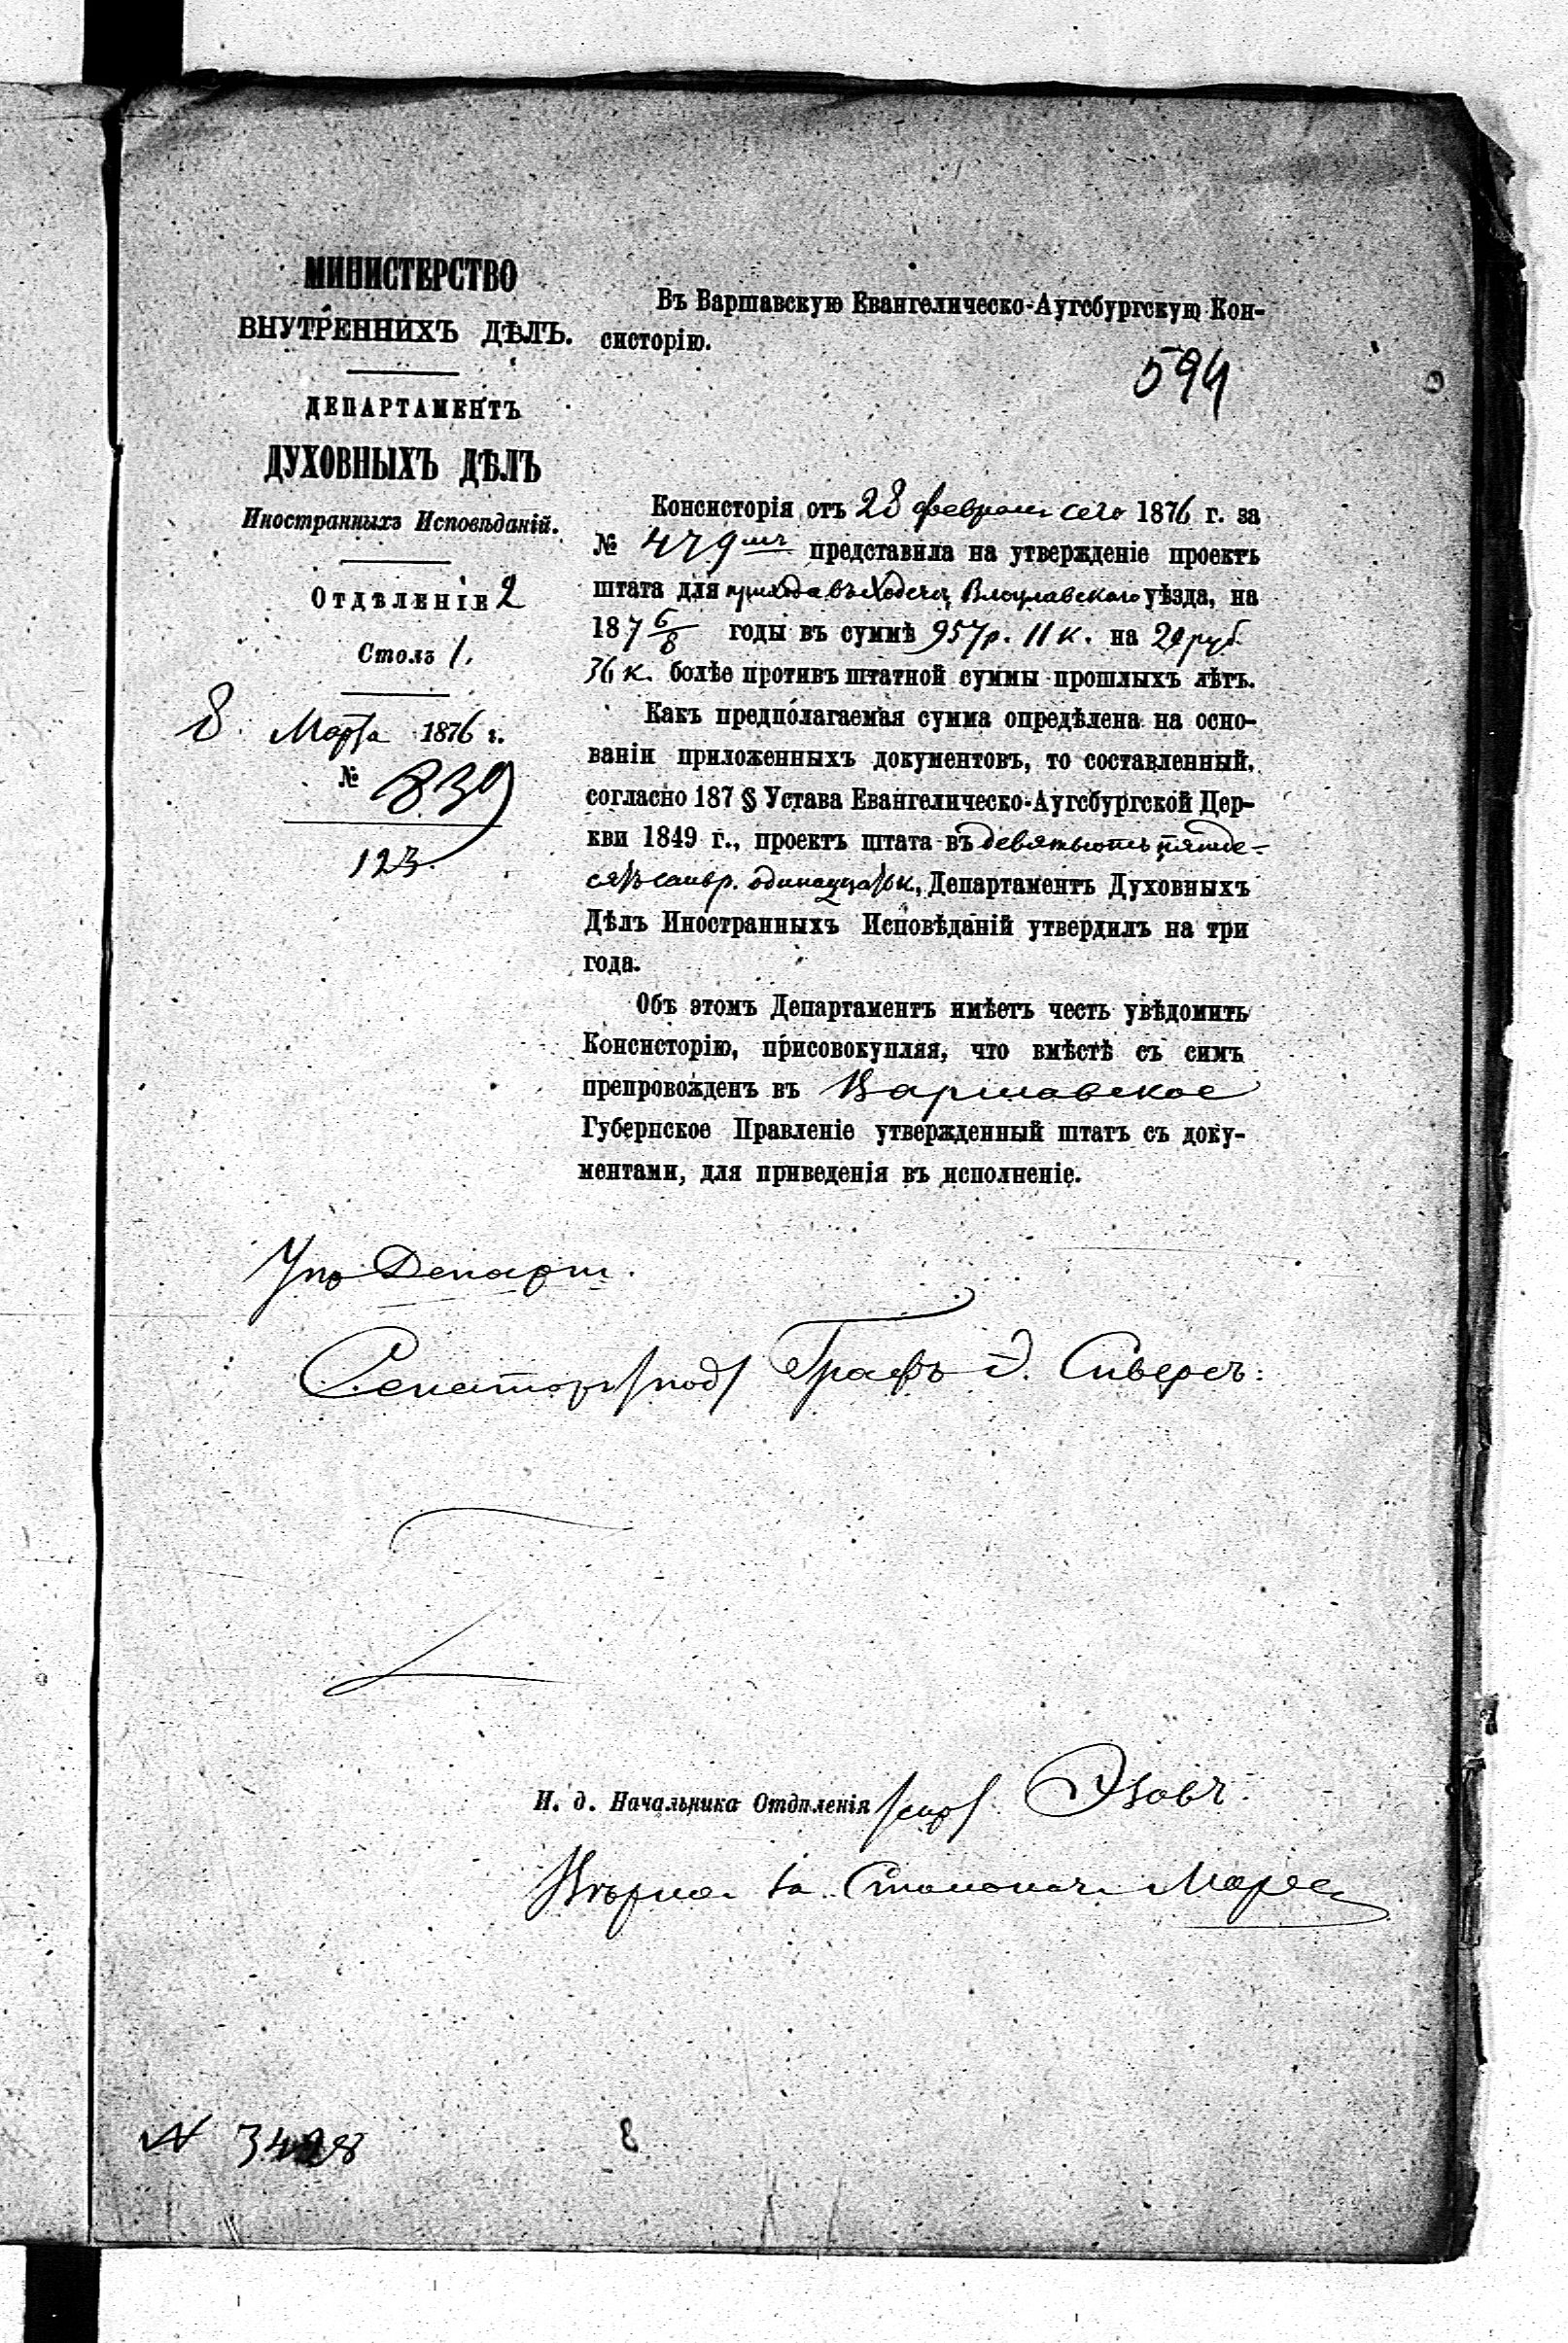 МИНИСТЕРСТВО
ВНУТРЕННИХЪ ДѢЛЪ.
ДЕПАРТАМЕНТЪ
ДУХОВНЫХЪ ДѢЛЪ
Иностранныхъ Исповѣданій.
Отдѣленіе 2
Столъ 1.
8 Марта 1876 г.
№ 839
123.
Въ Варшавскую Евангелическо-Аугсбургскую Кон-
систорію.
594
Консисторія отъ 28 февраля сего 1876 г. за
№ 479 представила на утвержденіе проектъ
штата для прихода въ Ходечъ Влоцлавскаго уѣзда, на
187 6/8 годы въ суммѣ 957 р. 11 к. на 21 руб
36 к. болѣе противъ штатной суммы прошлыхъ лѣтъ.
Какъ предполагаемая сумма опредѣлена на осно-
ваніи приложенныхъ документовъ, то составленный,
согласно 187 § Устава Евангелическо-Аугсбургской Цер-
кви 1849 г., проектъ штата въ девятьсотъ пятьде-
сятъ семь р. одинадцать к., Департаментъ Духовныхъ
Дѣлъ Иностранныхъ Исповѣданій утвердилъ на три
года.
Объ этомъ Департаментъ имѣетъ честь увѣдомить
Консисторію, присовокупляя, что вмѣстѣ съ симъ
препровожденъ въ Варшавское
Губернское Правленіе утвержденный штатъ съ доку-
ментами, для приведенія въ исполненіе.
Упр Департ.
Сенаторъ /под/ Графъ Э. Сиверсъ.
И. д. Начальника Отдѣленія /скр/ Эзовъ.
Вѣрно: За Столонач.
№ 3428
8